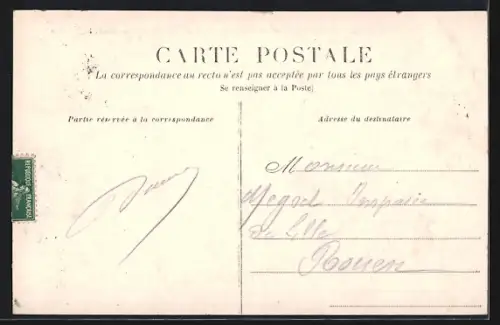 CARTE POSTALE
La correspondance au recto n'est pas acceptée par tous les pays étrangers
(Se renseigner à la Poste)
Partie réservée à la correspondance
Adresse du destinataire
Monsieur
de Lille
Rouen
REPUBLIQUE FRANÇAISE